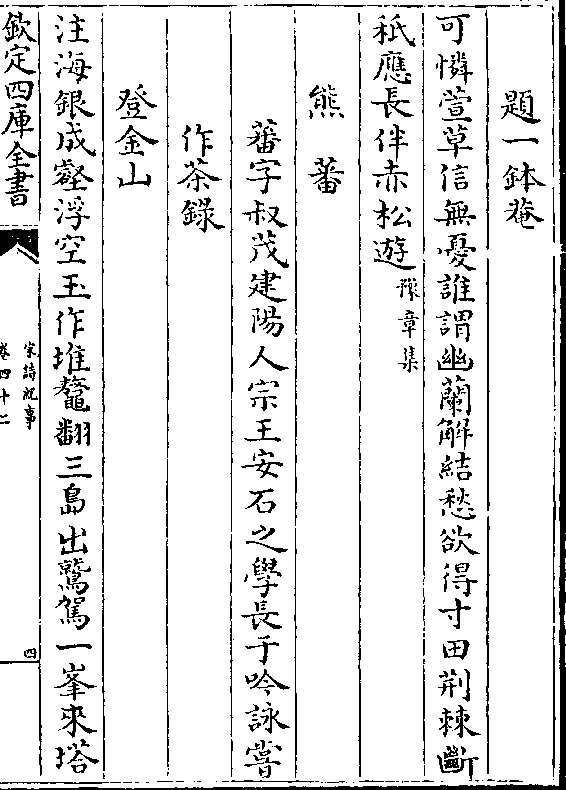 題一鉢菴
可憐萱草信無憂誰謂幽蘭解結愁欲得寸田荆棘斷
秖應長伴赤松遊豫章集
熊蕃
蕃字叔茂建陽人宗王安石之學長于吟詠嘗
作茶錄
登金山
注海銀成壑浮空玉作堆鼇翻三島出鷲駕一峯來塔
欽定四庫全書
宋詩紀事
卷四十二
四